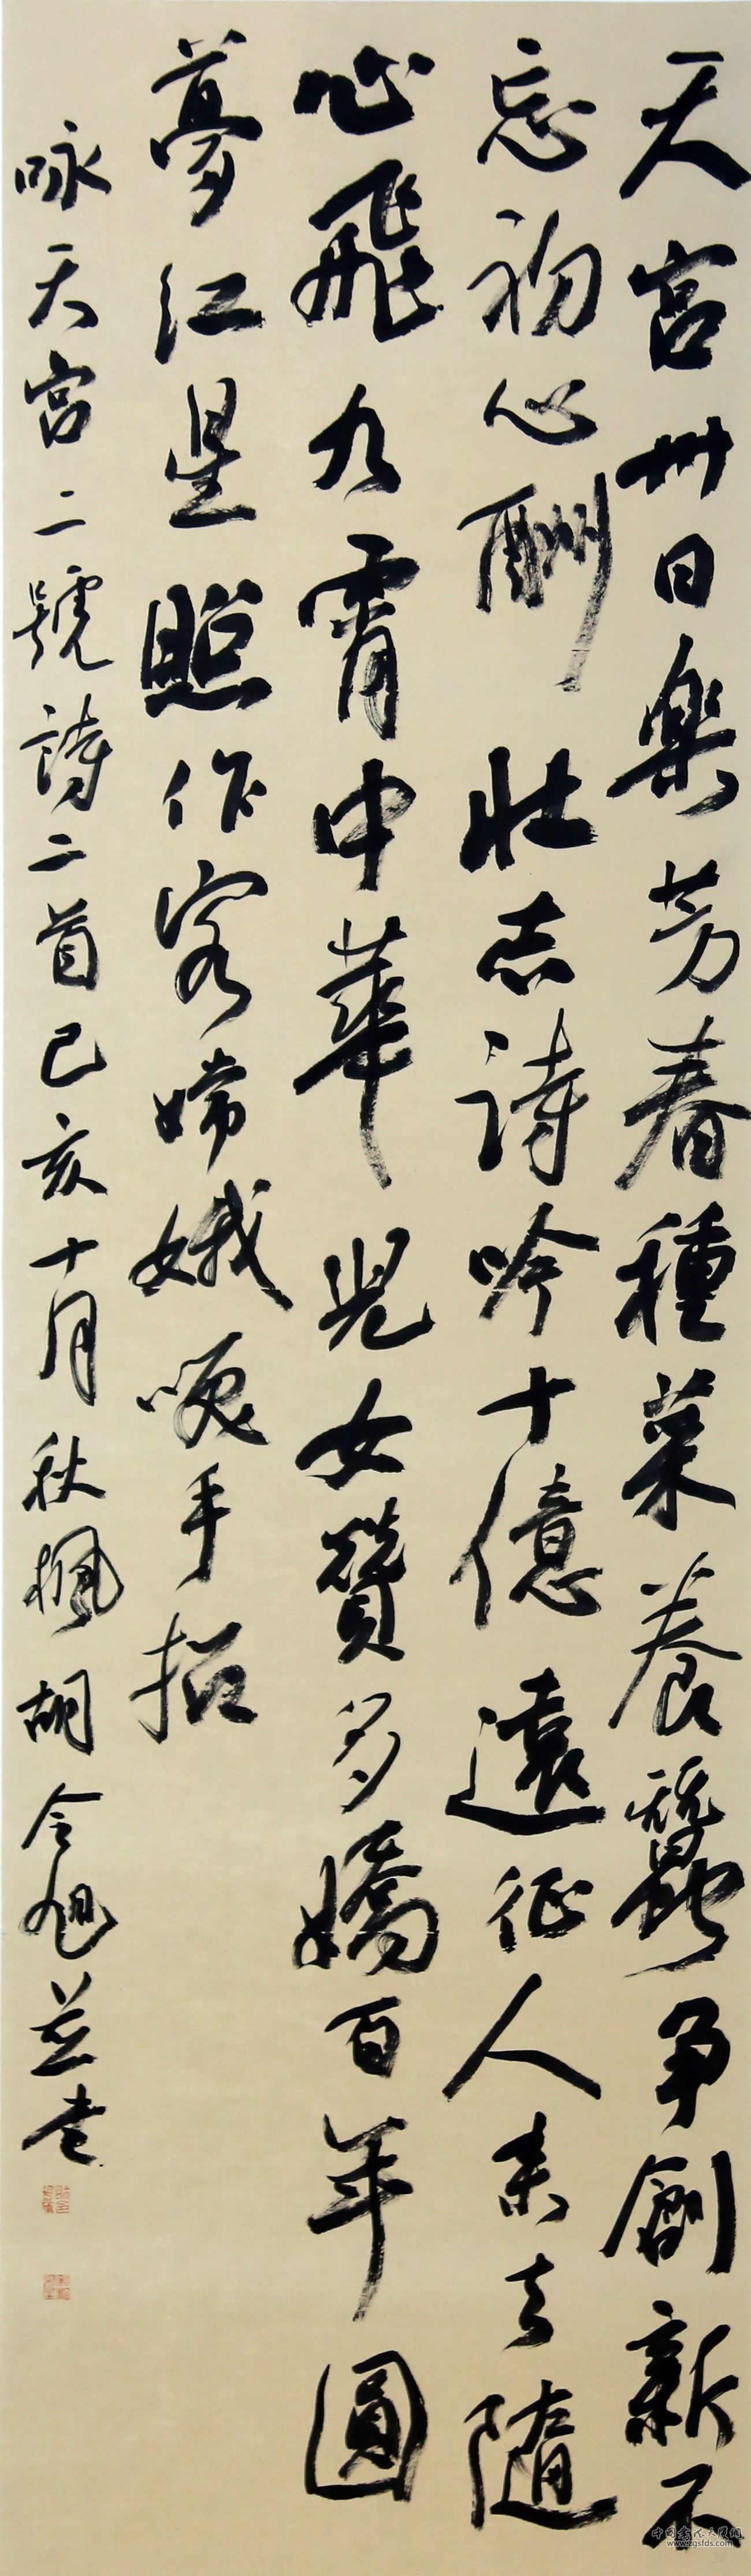 天宮卅日樂芳春種菜養蠶爭創新不
忘初心酬壯志詩吟十億遠征人來去隨
心飛九霄中華兒女贊多嬌百年圓
夢紅星照作客嫦娥唤手招
咏天宮二號詩二首己亥十月秋楓胡令旭並書
www.zgsfds.com